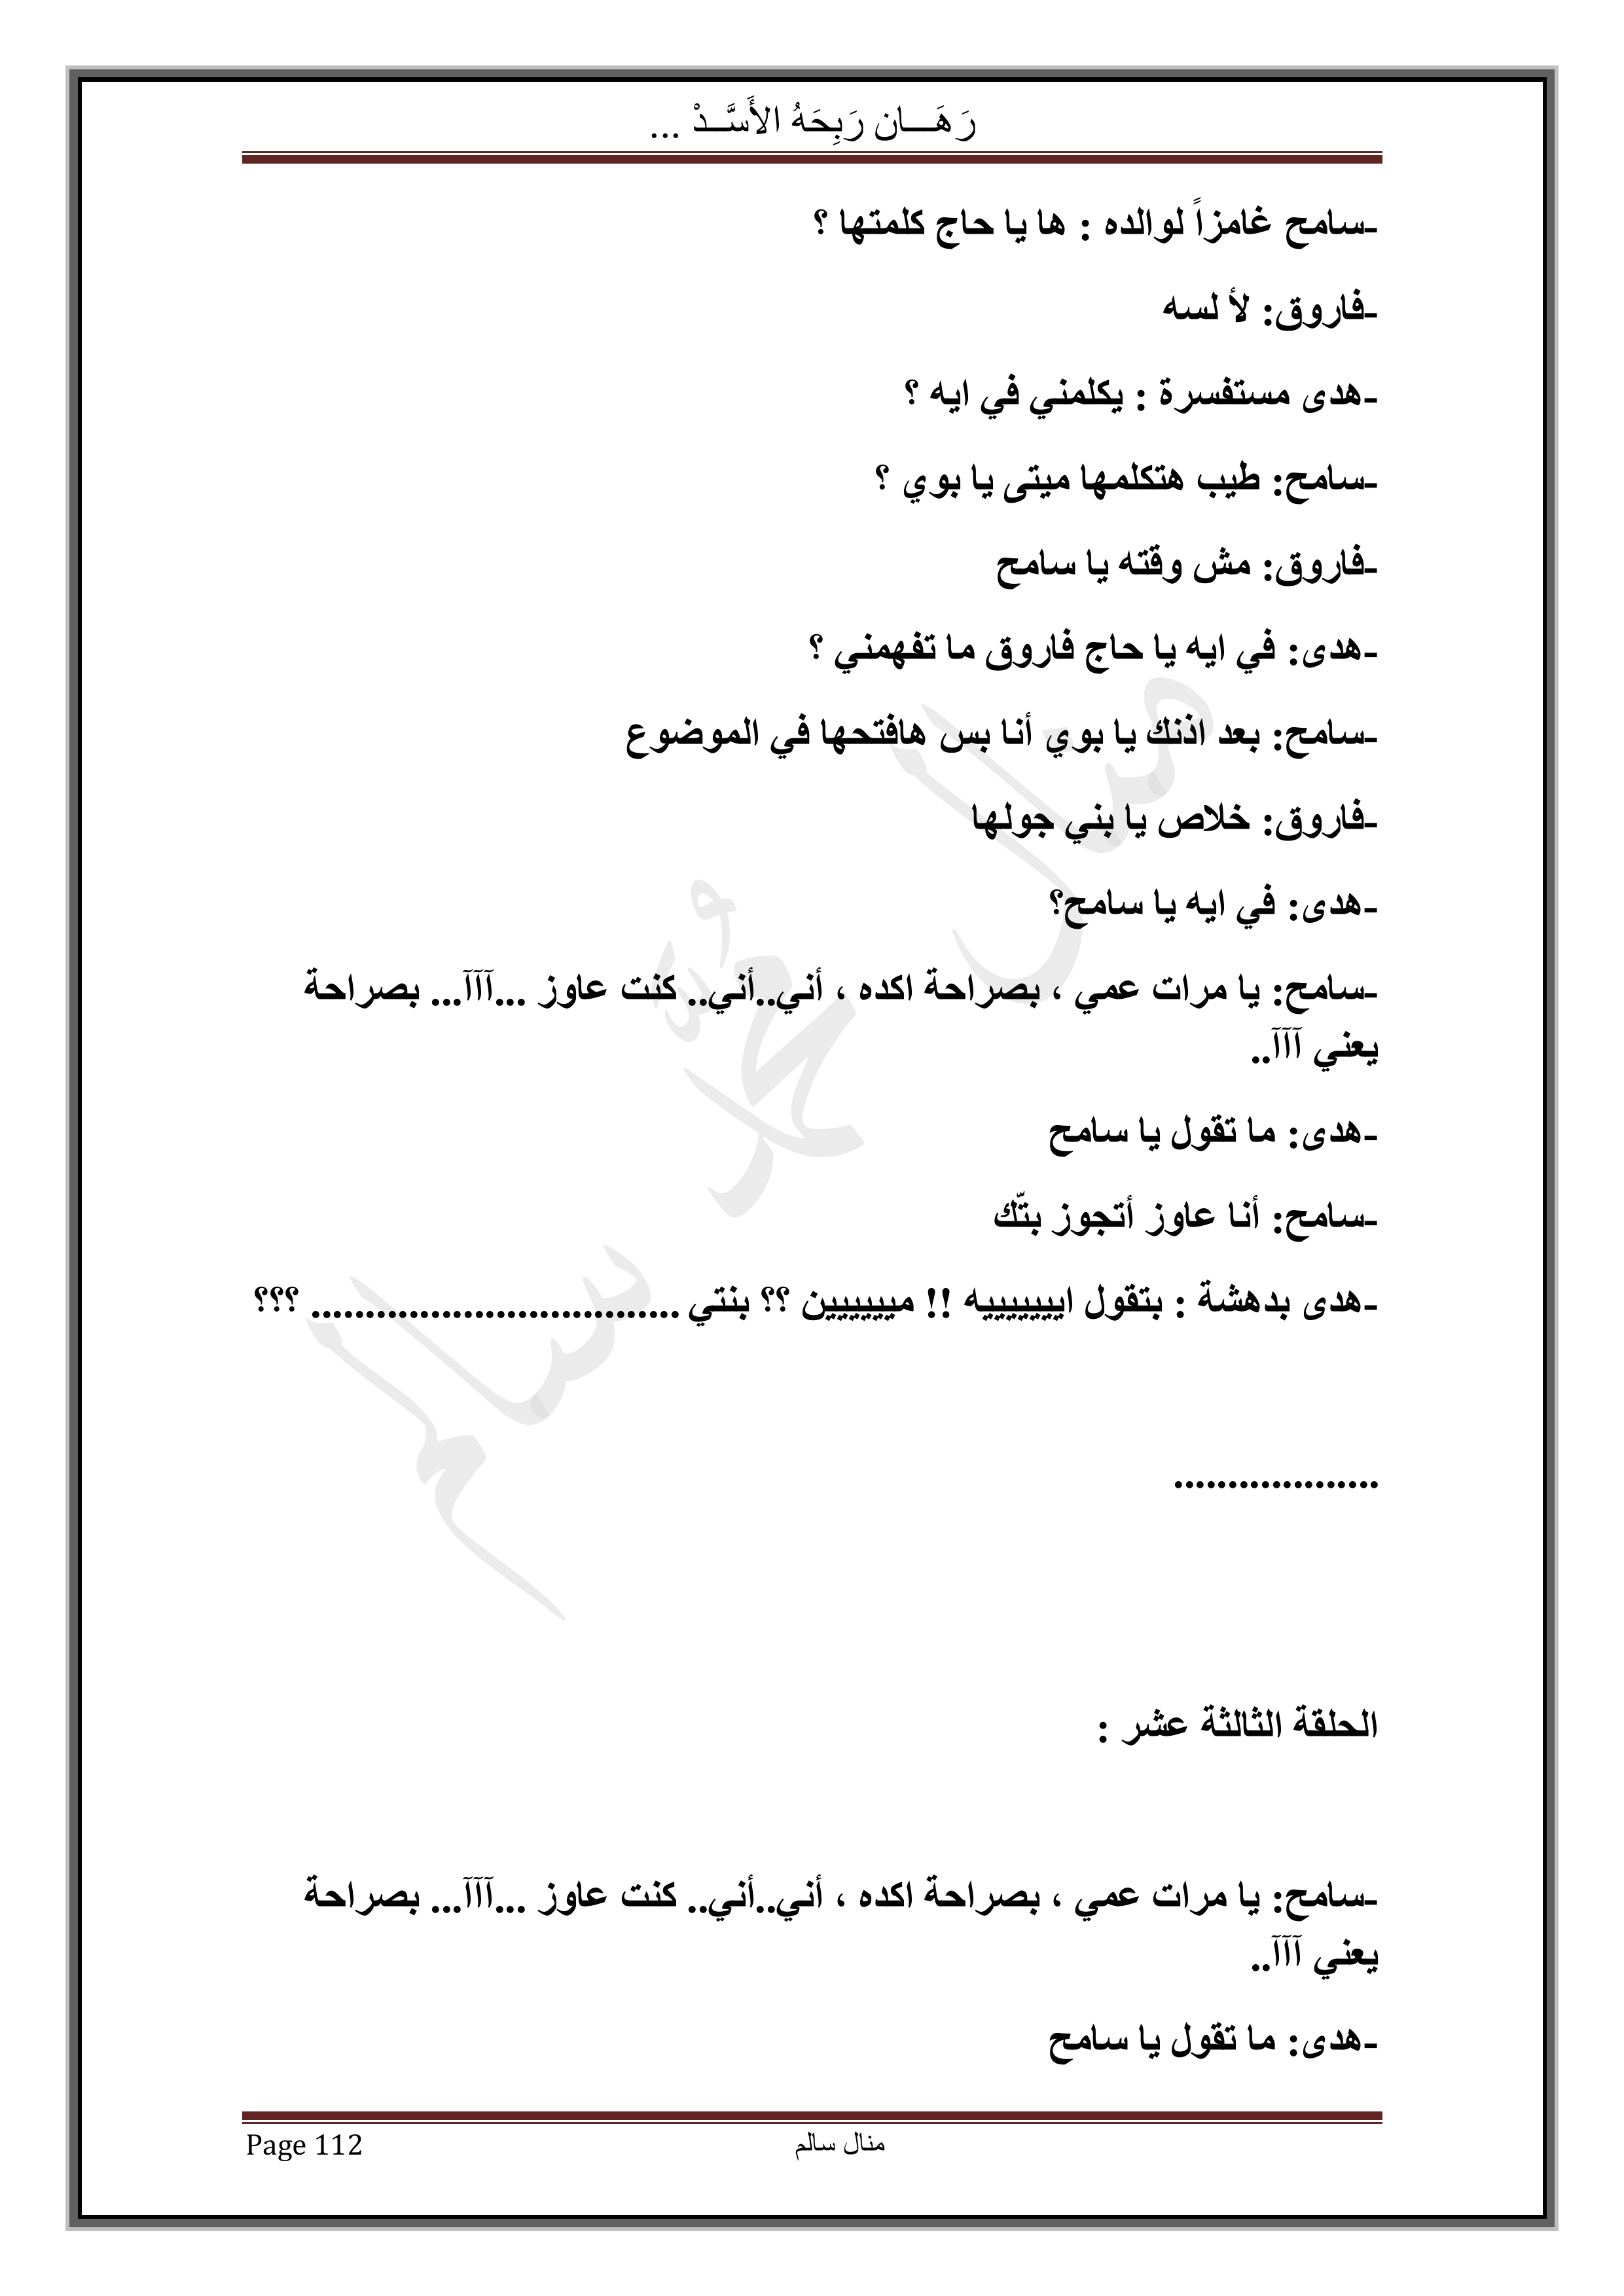 رَهَـــان رَبِحَهُ الأَسَّــدْ ...
-سامح غامزاً لوالده : ها يا حاج كلمتها ؟
-فاروق: لأ لسه
-هدى مستفسرة : يكلمني في ايه ؟
-سامح: طيب هتكلمها ميتى يا بوي ؟
-فاروق: مش وقته يا سامح
-هدى: في ايه يا حاج فاروق ما تفهمني ؟
-سامح: بعد اذنك يا بوي أنا بس هافتحها في الموضوع
-فاروق: خلاص يا بني جولها
-هدى: في ايه يا سامح؟
-سامح: يا مرات عمي ، بصراحة اكده ، أني..أني.. كنت عاوز ...آآآ... بصراحة
يعني آآآ..
-هدى: ما تقول يا سامح
-سامح: أنا عاوز أتجوز بتّك
-هدى بدهشة : بتقول اييييييييه !! ميييييين ؟؟ بنتي .................................. ؟؟؟
...................
الحلقة الثالثة عشر :
-سامح: يا مرات عمي ، بصراحة اكده ، أني..أني.. كنت عاوز ...آآآ... بصراحة
يعني آآآ..
-هدى: ما تقول يا سامح
منال سالم
Page 112
منال محمد سالم